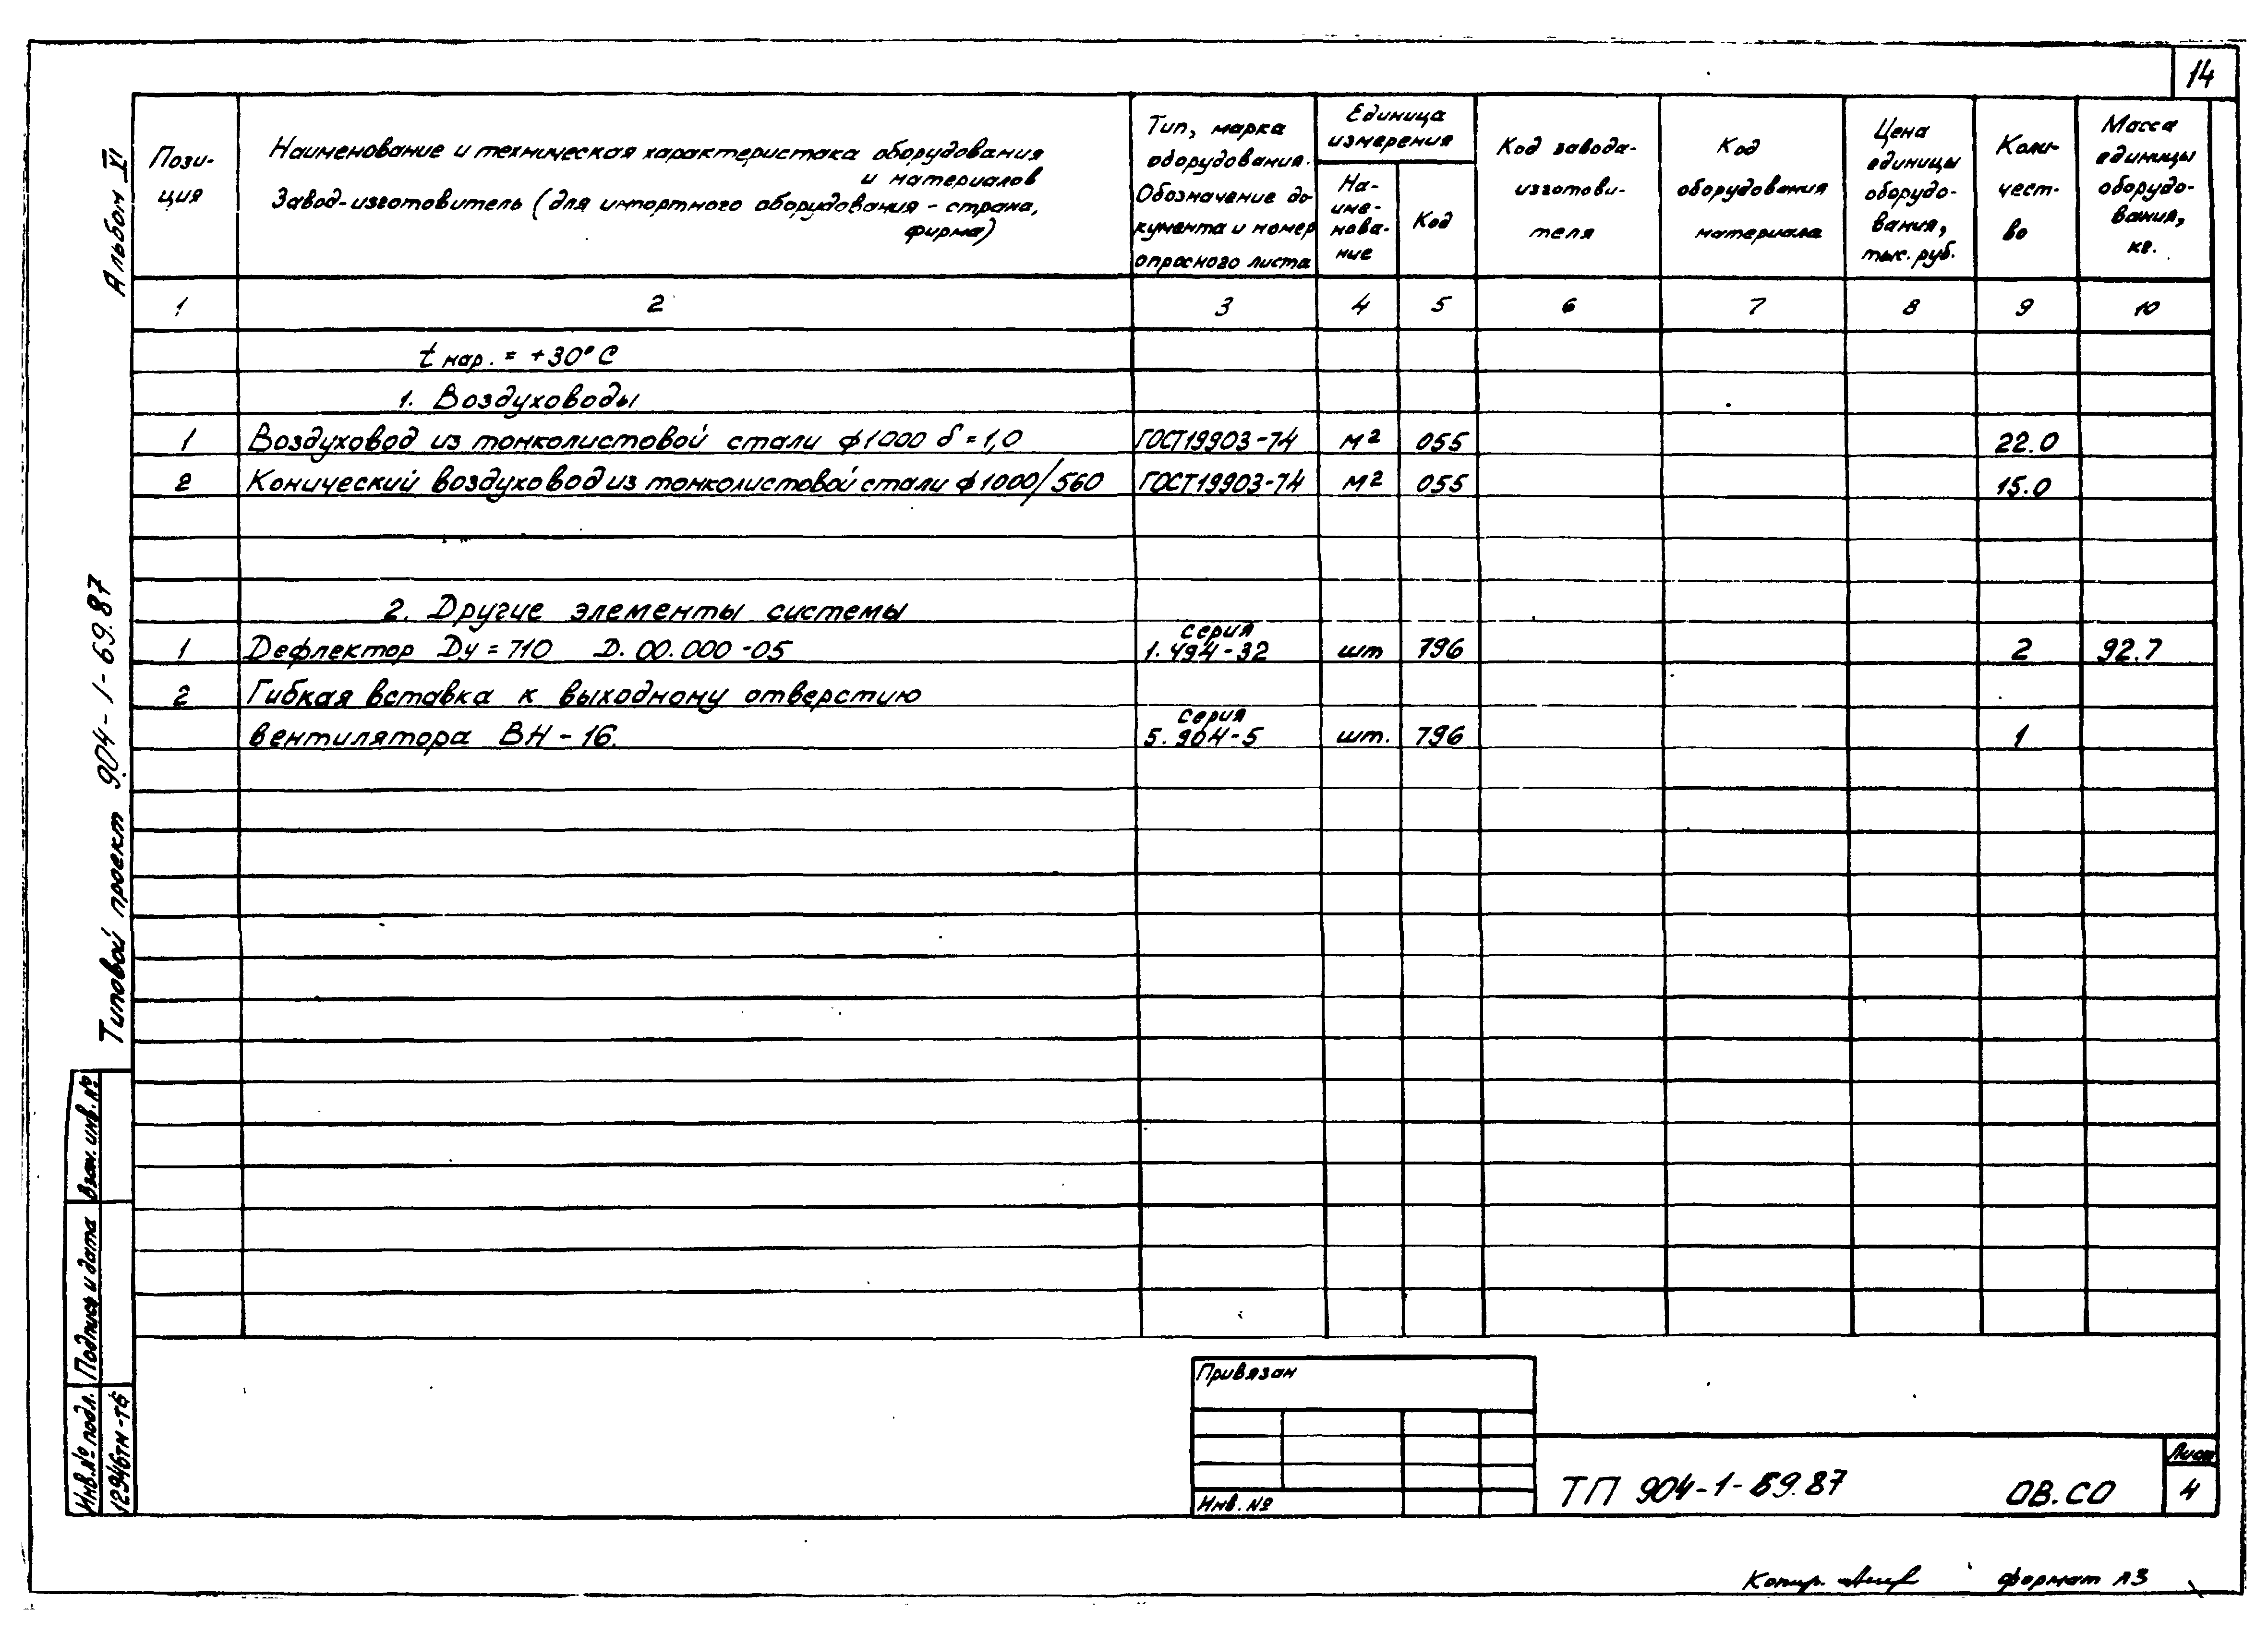 14
Альбом XI
Типовой проект 904-1-69.87
Пози-
ция
Наименование и техническая характеристака оборудования
и материалов
Завод-изготовитель (для импортного оборудования - страна,
фирма)
Тип, марка
оборудования.
Обозначение до-
кумента и номер
опросного листа
Единица
измерения
На-
име-
нова-
ние
Код
Код завода-
изготови-
теля
Код
оборудования
материала
Цена
единицы
оборудо-
вания,
тыс. руб.
Коли-
чест-
во
Масса
единицы
оборудо-
вания,
кг.
1 2 3 4 5 6 7 8 9 10
t нар. = +30° С
1. Воздуховоды
1 Воздуховод из тонколистовой стали ф1000 δ = 1,0 ГОСТ19903-74 м2 055 22.0
2 Конический воздуховод из тонколистовой стали ф1000/560 ГОСТ19903-74 м2 055 15.0
2. Другие элементы системы
1 Дефлектор Ду = 710 Д. 00.000-05 серия 1.494-32 шт 796 2 92.7
2 Гибкая вставка к выходному отверстию
вентилятора ВН-16. серия 5.904-5 шт. 796 1
Взам. инв. №
Подпись и дата
Инв. № подл.
12946тм-т6
Привязан
Инв. №
ТП 904-1-69.87
ОВ.СО
Лист
4
Копир.
формат А3